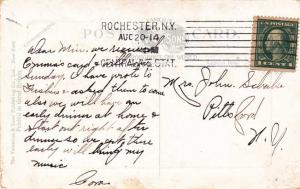 ROCHESTER, N.Y.
AUG 20-14
CENTRAL STAT.
POST
Dear Min, we received
Emma's card &
Sunday, I have wrote to
& asked them to come
also we will have an
early dinner at home &
start out right after
dinner so we get there
early will bring my
music
Cora
Mrs. John
Pittsford
N.Y.